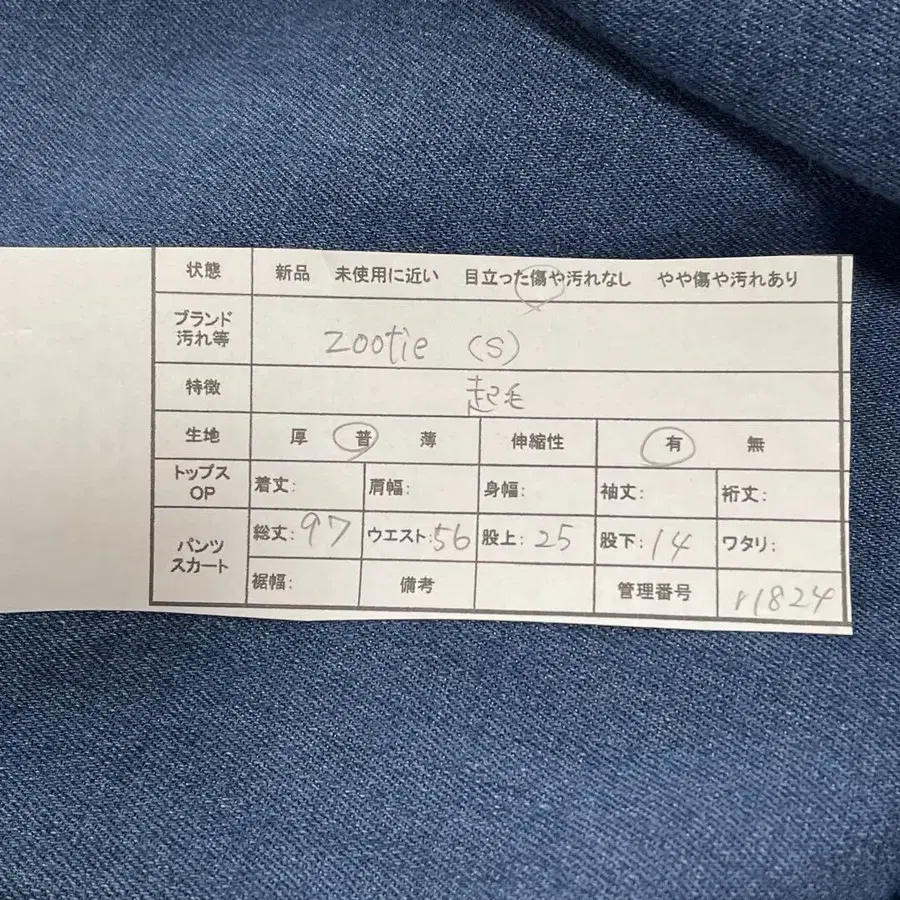 状態 新品 未使用に近い 目立った傷や汚れなし やや傷や汚れあり
ブランド
汚れ等 zootie (S)
特徴 起毛
生地 厚 普 薄 伸縮性 有 無
トップス
OP 着丈: 肩幅: 身幅: 袖丈: 裄丈:
パンツ
スカート 総丈: 97 ウエスト: 56 股上: 25 股下: 14 ワタリ:
裾幅: 備考 管理番号 r1824